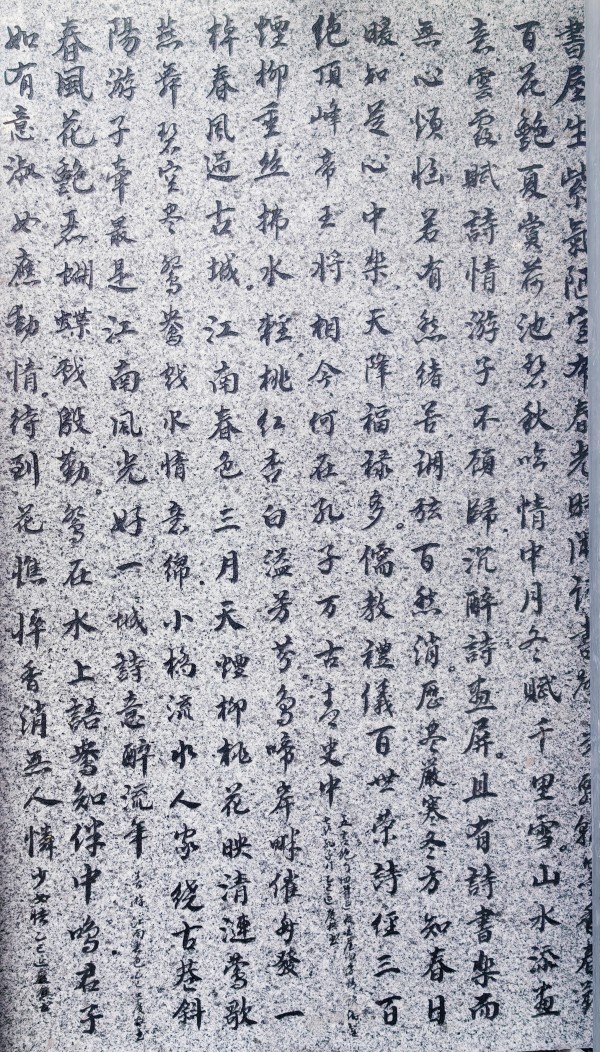 書屋生紫氣陋室布春光時闲讀書
百花艷夏賞荷池碧秋吟情中月冬赋千里雪。山水添画
意雲霞赋詩情游子不顾歸沉醉詩画屏。且有詩書樂而
無心烦恼若有愁绪苦调弦百愁消。歷尽嚴寒冬方知春日
暖知足心中樂天降福禄多。儒教禮儀百世荣詩经三百
绝頂峰帝王将相今何在孔子万古青史中
煙柳垂丝拂水輕桃红杏白溢芳芬鳥啼岸畔催舟發一
棹春风過古城。江南春色三月天煙柳桃花映清漣鶯歌
燕舞碧空尽鴛鴦戏水情意绵小橋流水人家绕古巷斜
陽游子牵最是江南风光好一城詩意醉流年
春風花艷惹蝴蝶戏殷勤。鴛在水上語鴦知伴中鸣君子
如有意淑女應動情。待到花憔悴香消無人憐